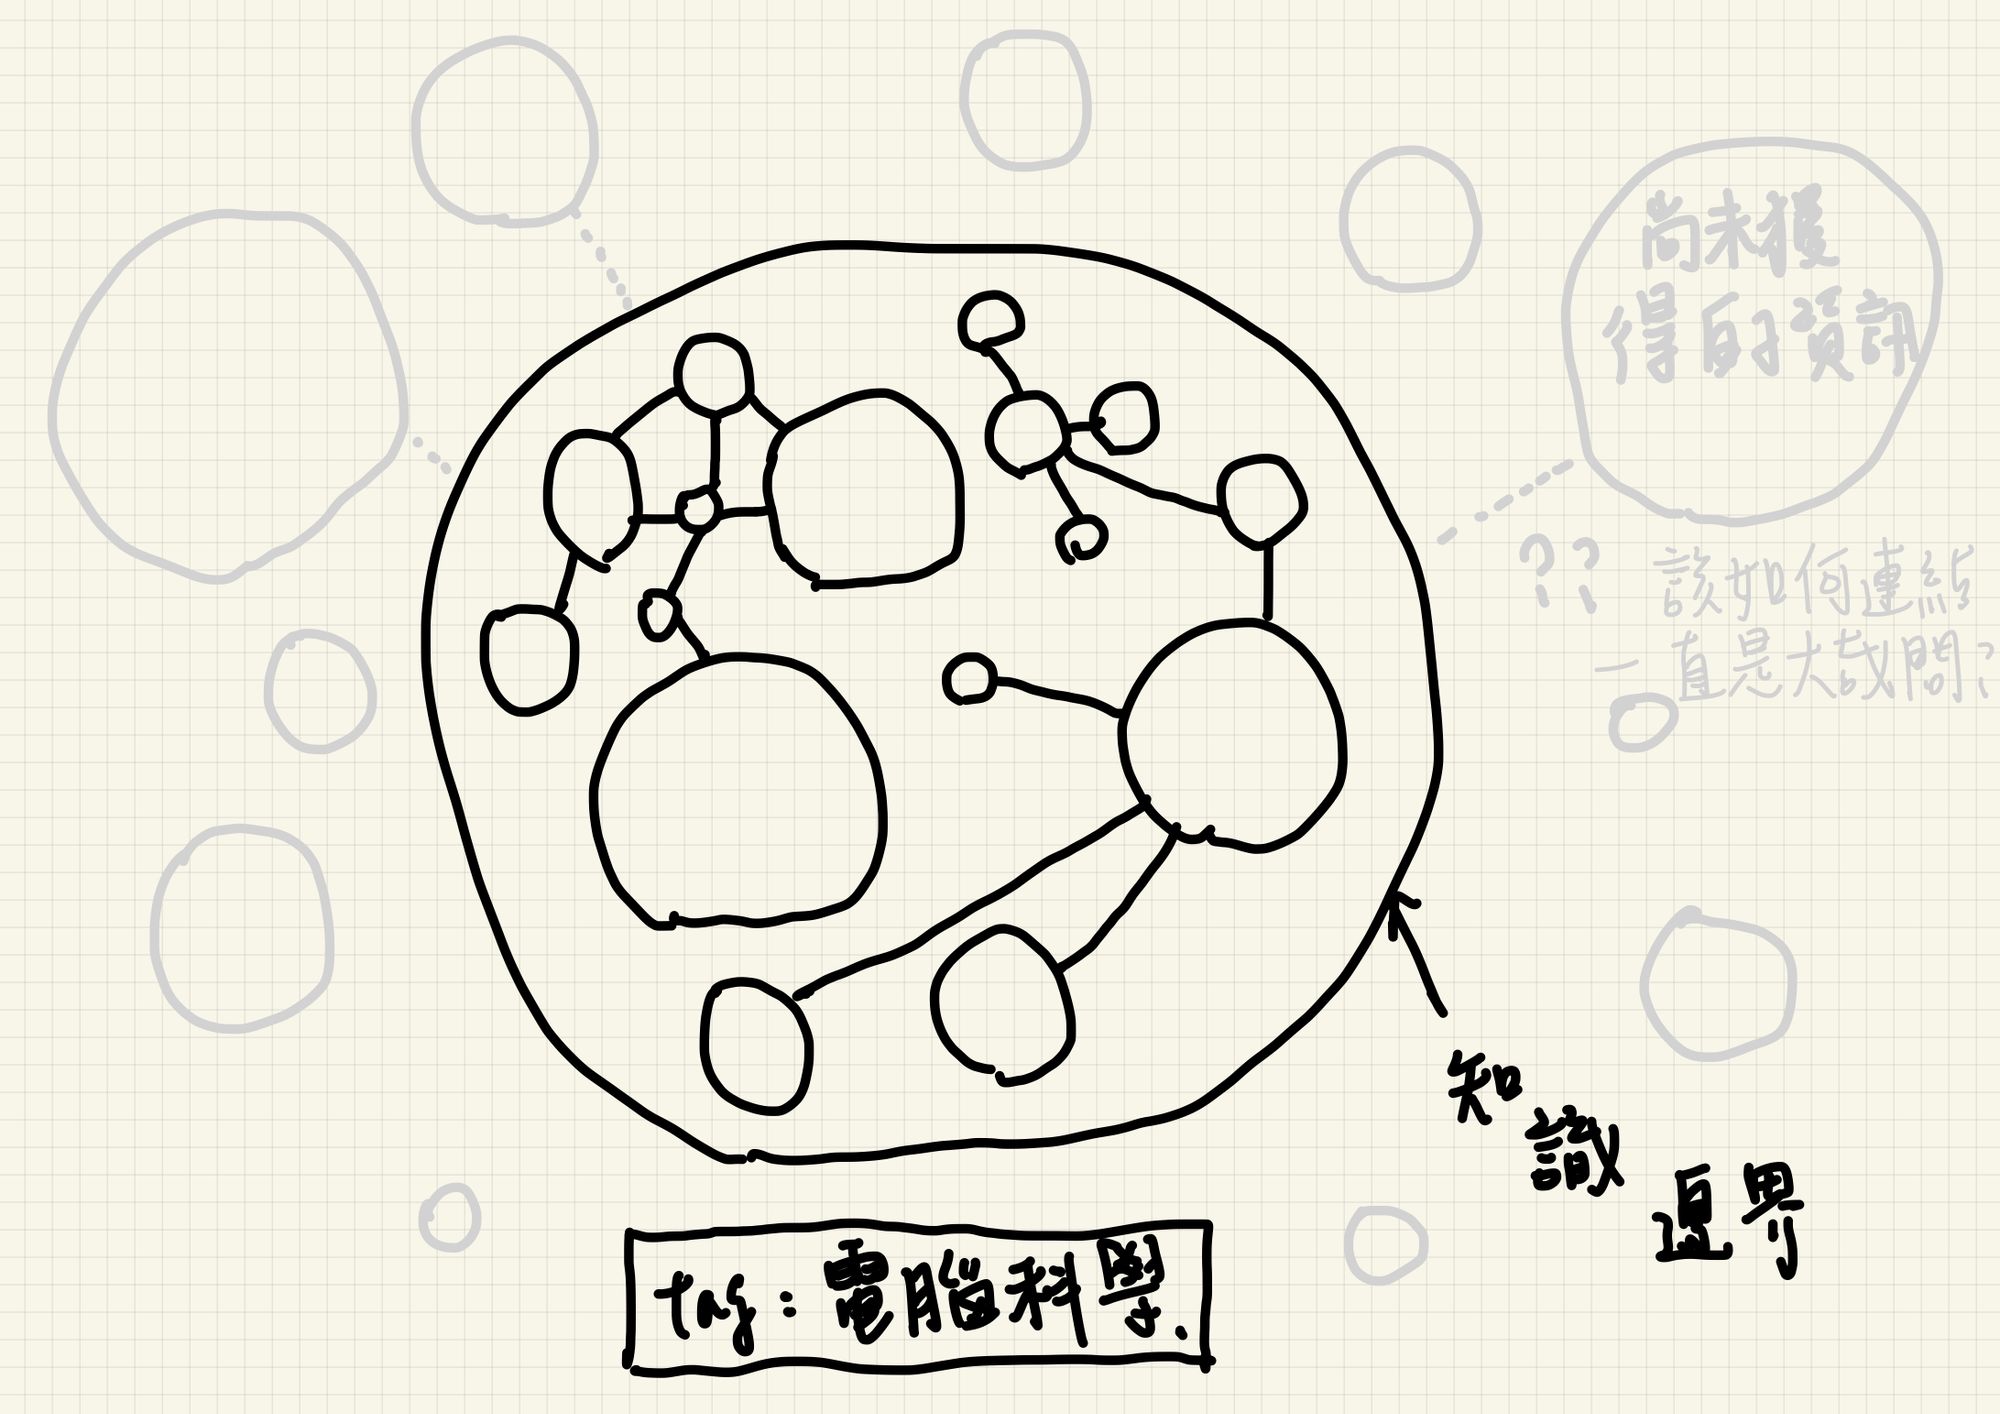 尚未獲
得的資訊
?? 該如何連結
一直是大哉問?
知識邊界
tag: 電腦科學.